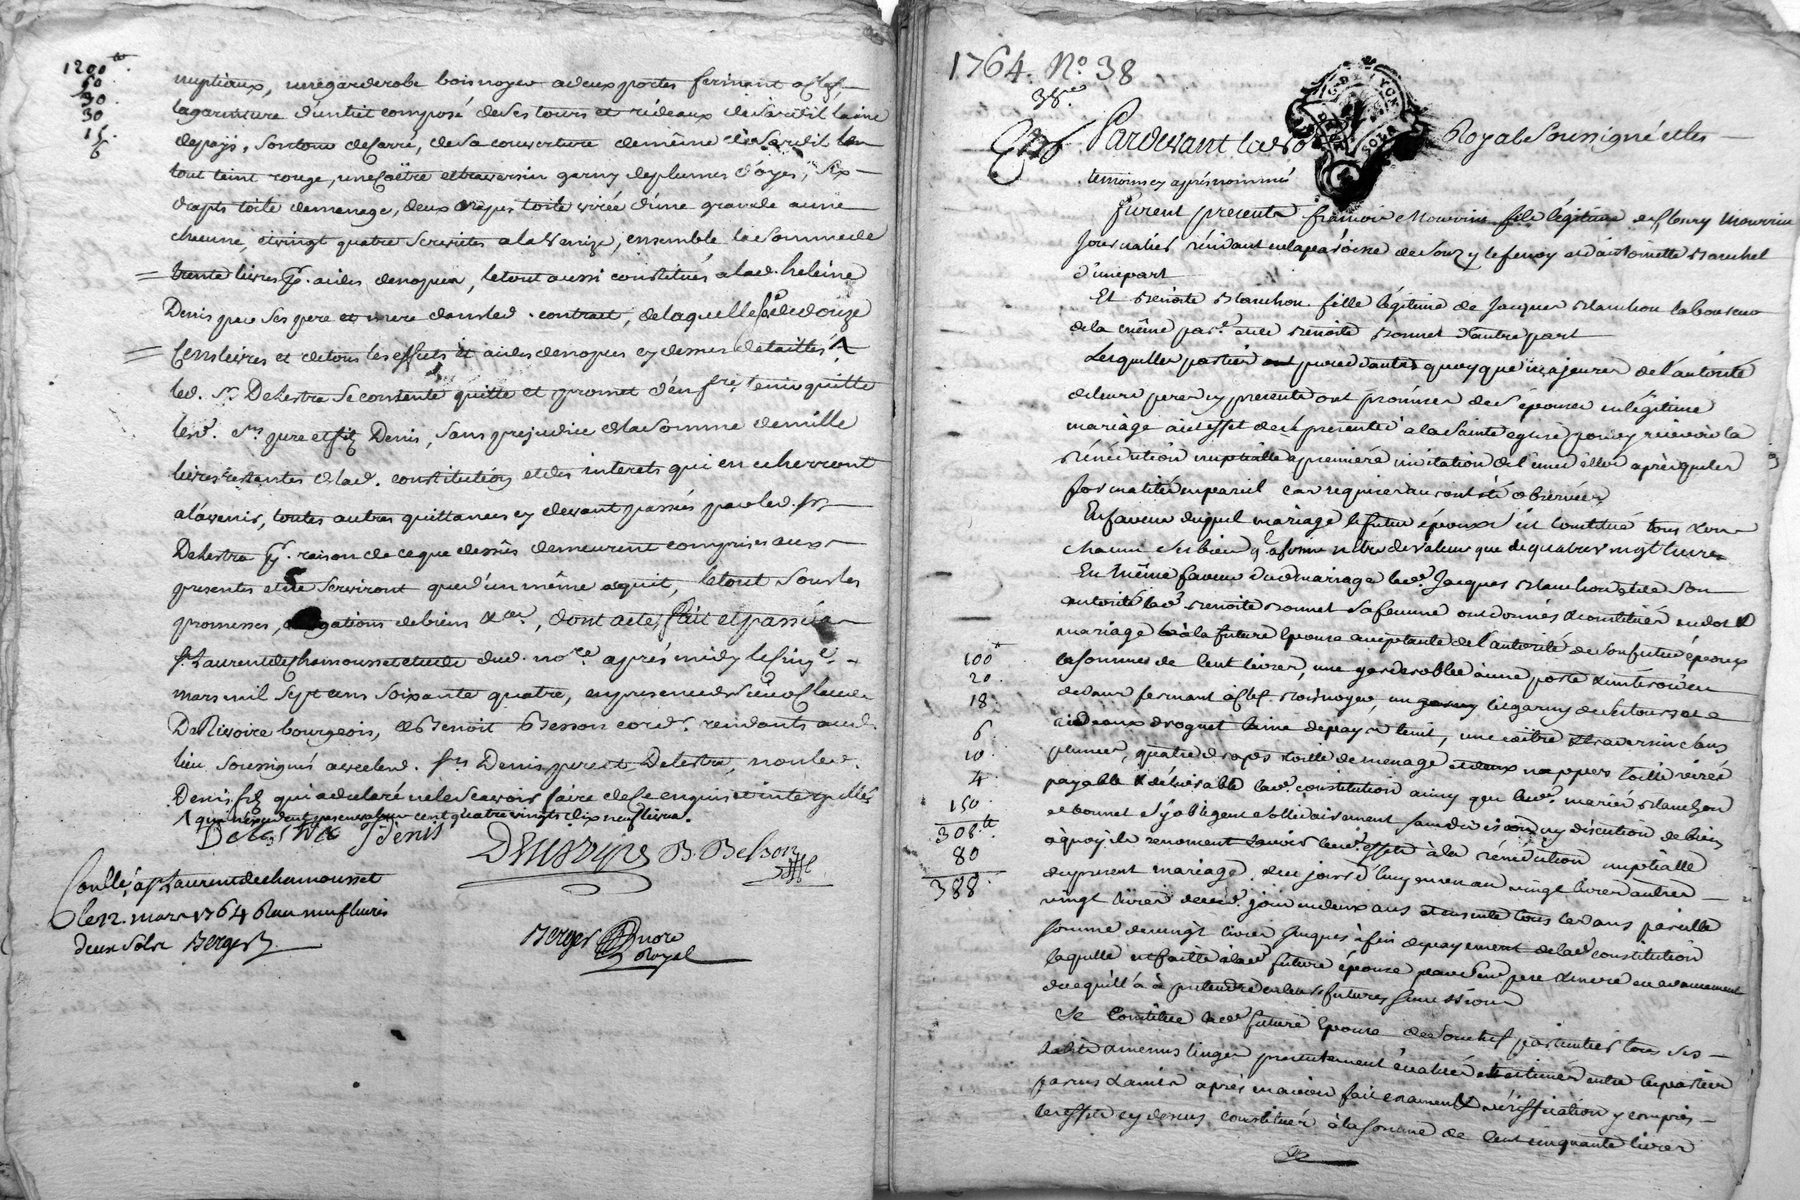 1200
60
30
30
15
6
nuptiaux, une garderobe bois noyer a deux portes fermant a clef,
la garniture d'un lit composé de ses tours et rideaux de sardil laine
depays, son tour de sarre, de sa couverture de même de sardil le
tout teint rouge, une coëtre et traversin garny de plumes d'oyes, six
drapts toile de menage, deux nappes toile virée d'une grande aune
chacune, et vingt quatre serviettes a la Venize, ensemble la somme de
trente livres pr. aides de nopces, le tout aussi constitués a lad. heleine
Denis par ses pere et mere dans led. contract, de laquelle so. de douze
Cens livres et de tous les effets et aides de nopces cy dessus detaillés
led. Sr. Delestra se contente quitte et promet d'en fre. tenir quitte
lesd. Srs. pere et fils Denis, sans prejudice de la somme de mille
livres restantes de lad. constitution et des interets qui en echerront
a l'avenir, toutes autres quittances cy devant passées par led. Sr.
Delestra pr. raison de ce que dessus demeurent comprises aux
presentes et ne serviront que d'un même aquit, le tout sous les
promesses, obligations de biens &ca., dont acte, fait et passé a
St. Laurent de chamousset etude dud. nore. après midy le cinq
mars mil sept cens soixante quatre, en presence de Sr.
DeRivoire bourgeois, de Benoit Besson cordr. residants aud.
lieu soussignés avec lesd. Srs. Denis pere et Delestra, non led.
Denis fils qui a declaré ne le scavoir faire de ce enquis et interpellés
qui reviennent par en valeur cent quatre vingts dix neuf livres.
Delestra Denis
DeRivoire B. Besson
Berger Nore
Royal
Conllé, a St. Laurent de chamousset
le 12. mars 1764 Reçu neuf livres
deux sols Berger
1764. No. 38
38e.
Pardevant le No Royal Soussigné et les
temoins cy après nommés
furent presents françois Mourrin fils légitime de fleury Mourrin
journalier résidant en la paroisse de Souzy et d'antoinette Blanchet
d'une part
Et Benoite Blanchon fille légitime de Jacques Blanchon laboureur
de la même parse. et de Benoite Bonnet d'autre part
Lesquelles parties procedantes quoyque majeures de l'autorité
de leurs peres cy presents ont promises de s'épouser en légitime
mariage a cet effet de se presenter a la sainte eglise pour y recevoir la
bénédiction nuptialle a premiere invitation de l'une d'elles après que les
formalités en pareil cas requises auront été observées
En faveur duquel mariage le futur époux s'est constitué tous &
chacuns ses biens qu'il a affirmé n'etre de valeur que de quatre vingt livres
En même faveur dud mariage led. Jacques Blanchon et de son
autorité lad. Benoite Bonnet sa femme ont donnés & constitués en dot &
mariage a la future épouse acceptante de l'autorité de son futur époux
la somme de cent livres, une garderobe à une porte
dedans fermant à clef bois noyer, un lit garny de ses tours et
rideaux droguet laine depays teint, une coëtre & traversin clans
plumes, quatre draps toille de menage et deux nappes toille virée
payable & délivrable lad. constitution ainsy que lesd. mariés Blanchon
et bonnet s'y obligent sollidairement sans division ny discution de biens
à quoy ils renoncent scavoir lesd. effets à la bénédiction nuptialle
du present mariage, du jour d'huy en un an vingt livres autres
vingt livres dud. jour en deux ans et ensuite tous les ans pareille
somme de vingt livres jusques à fin de payement de lad. constitution
laquelle est faitte à lad. future épouse par sesd. pere & mere en avancement
de ce qu'il a à pretendre en leurs futures successions
Se constitue lad. future épouse de son chef particulier tous ses
habits & menus linges presentement évalués et estimés entre les parties
parens & amis après en avoir fait examen & vériffication y compris
les effets cy dessus constitués à la somme de cent cinquante livres
100
20
18
6
10
4
150
308
80
388